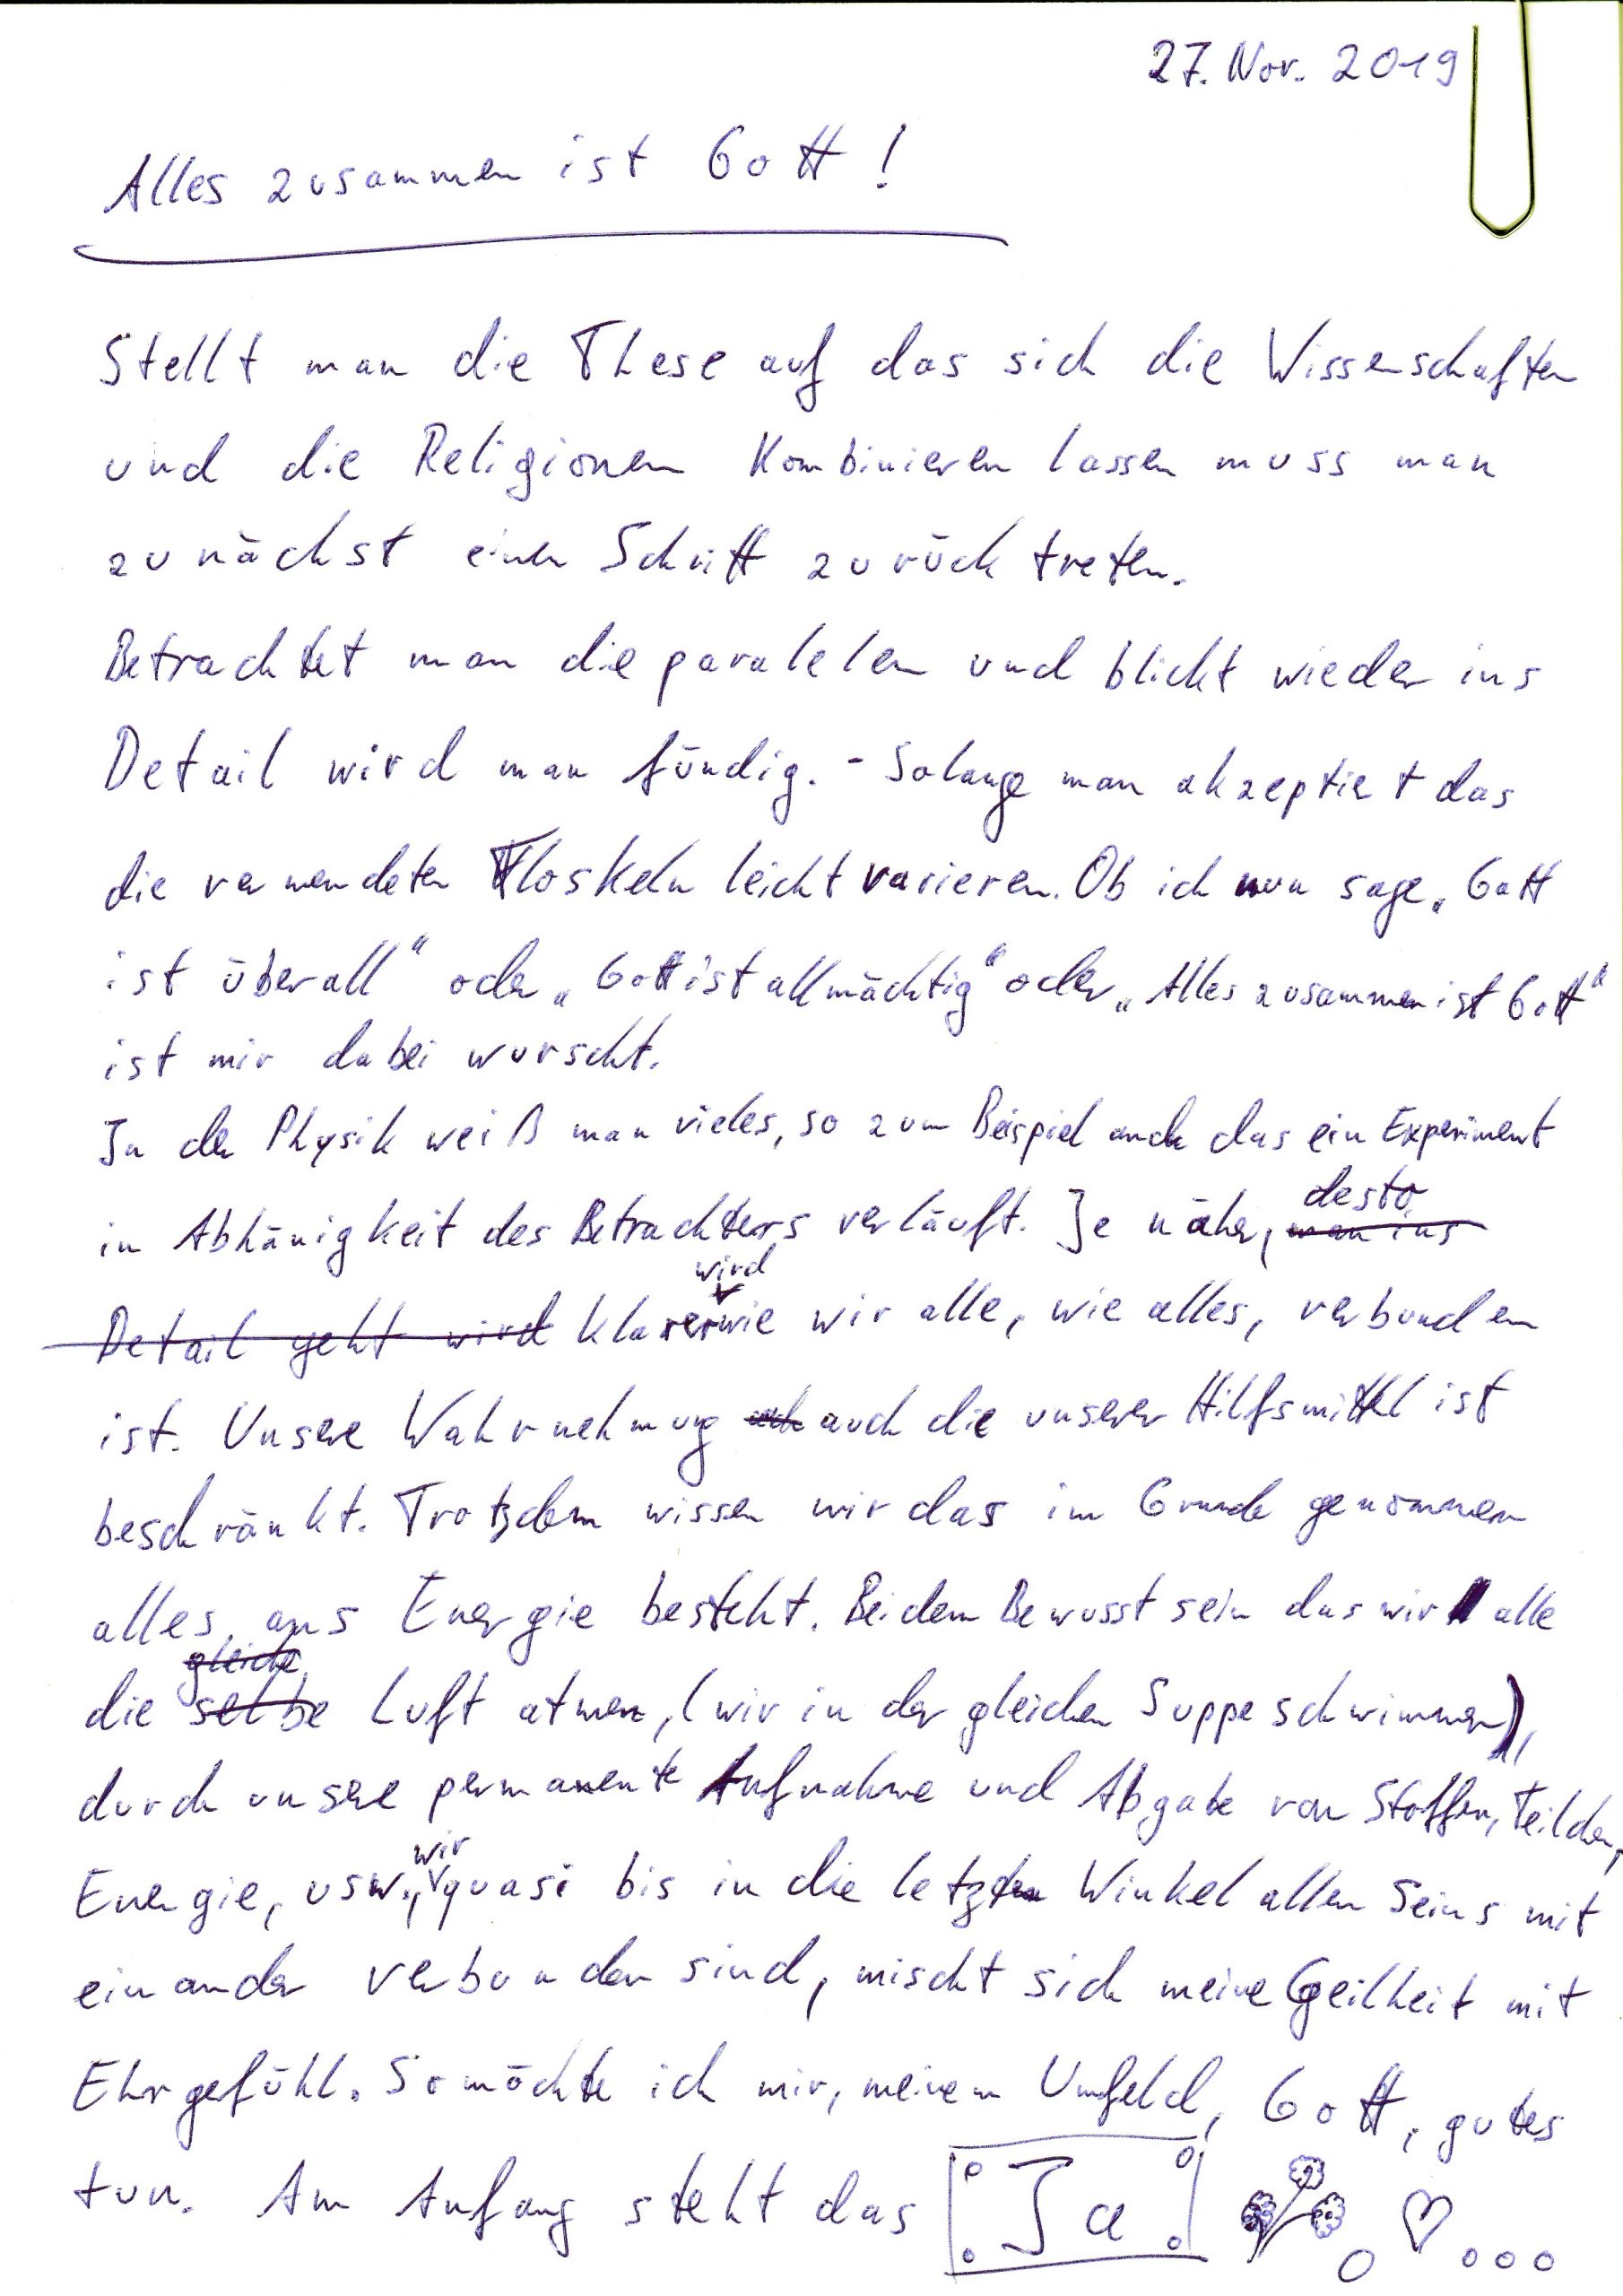 27. Nov. 2019
Alles zusammen ist Gott!
Stellt man die These auf das sich die Wissenschaften
und die Religionen Kombinieren lassen muss man
zunächst einen Schritt zurück treten.
Betrachtet man die paralelen und blickt wieder ins
Detail wird man fündig. - Solange man akzeptiert das
die verwendeten Floskeln leicht varieren. Ob ich nun sage „Gott
ist überall“ oder „Gott ist allmächtig“ oder „Alles zusammen ist Gott“
ist mir dabei wurscht.
In der Physik weiß man vieles, so zum Beispiel auch das ein Experiment
in Abhänigkeit des Betrachters verläuft. Je näher, man ins
desto
Detail geht wird klarer wie wir alle, wie alles, verbunden
wird
ist. Unsere Wahrnehmung auch die unserer Hilfsmittel ist
beschränkt. Trotzdem wissen wir das im Grunde genommen
alles aus Energie besteht. Bei dem Bewusst sein das wir alle
gleiche
die selbe Luft atmen, (wir in der gleichen Suppe schwimmen),
durch unsere permanente Aufnahme und Abgabe von Stoffen, Teilchen,
wir
Energie, usw., quasi bis in die letzten Winkel allen Seins mit
einander verbunden sind, mischt sich meine Geilheit mit
Ehrgefühl. So möchte ich mir, meinem Umfeld, Gott, gutes
tun. Am Anfang steht das Ja